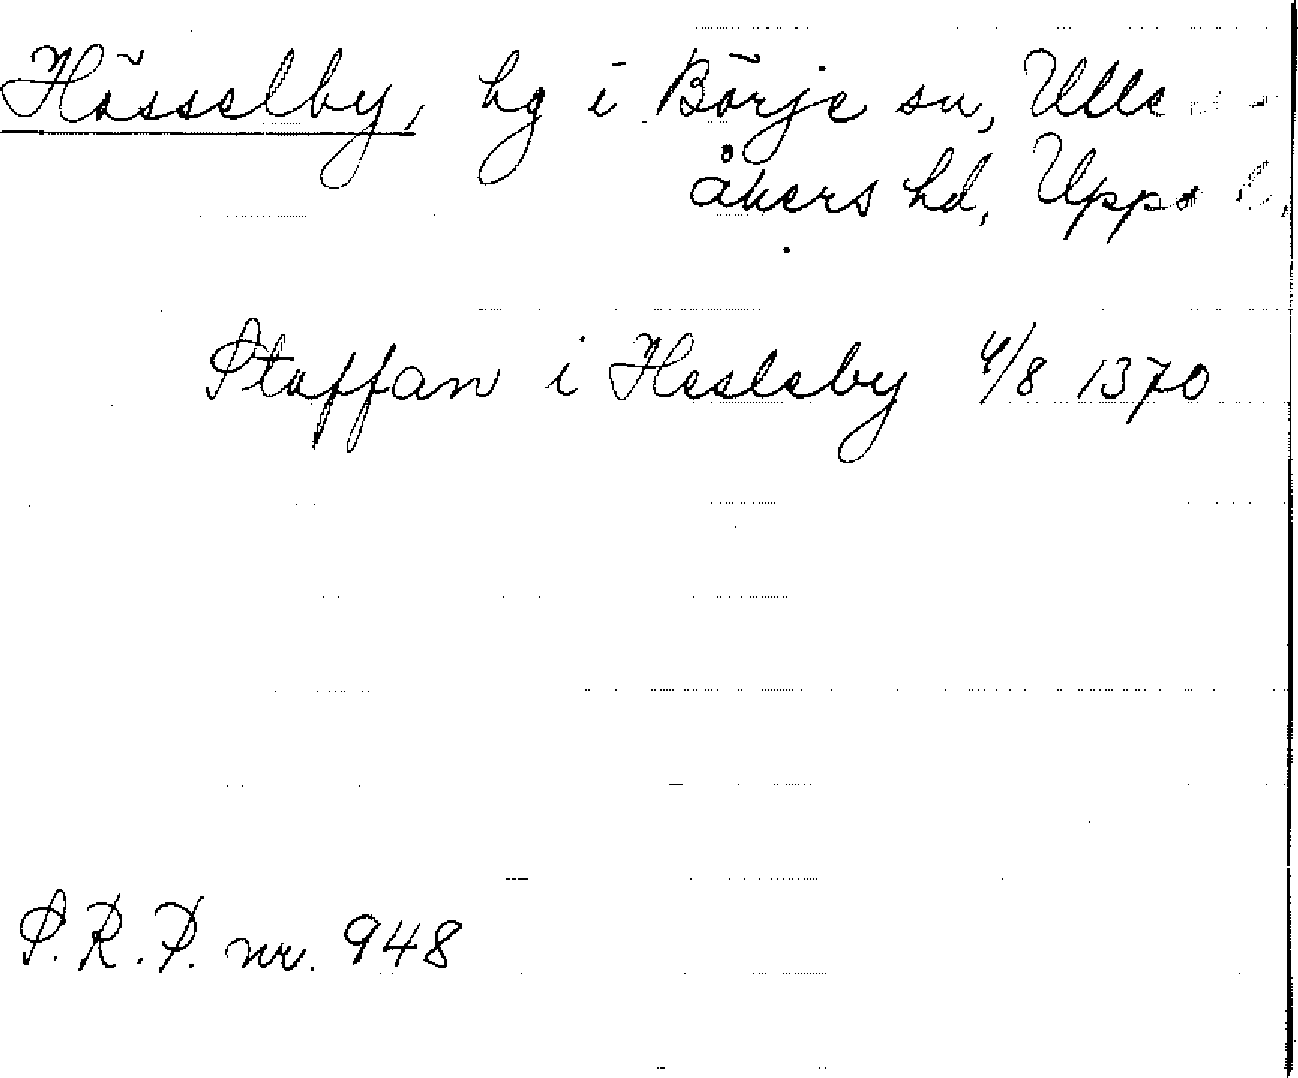 Hässelby, hg i Börje sn, Ulle
åkers hd, Upps l.
Staffan i Hesleby 4/8 1370
S.R.P. nr. 948